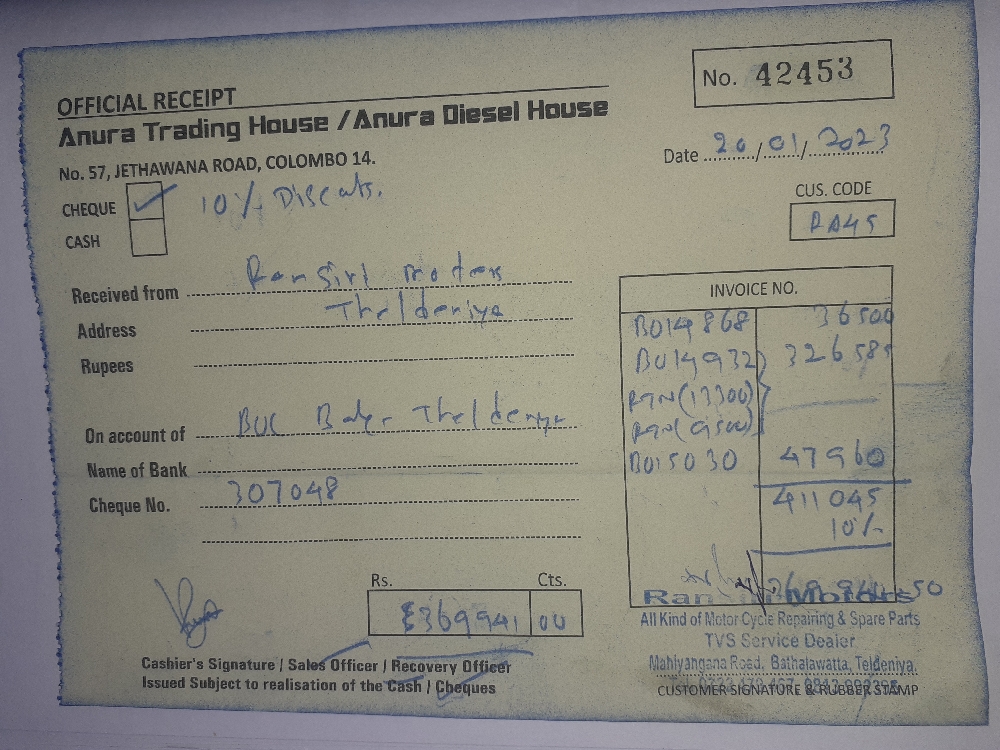 OFFICIAL RECEIPT
No. 42453
Anura Trading House / Anura Diesel House
No. 57, JETHAWANA ROAD, COLOMBO 14.
Date 20/01/2023
CHEQUE ✓ 10%
CASH
CUS. CODE
RA45
Received from Ransiri motors
Address Theldeniya
Rupees
On account of BOC
Name of Bank
Cheque No. 307048
INVOICE NO.
B014868 36500
B014932 326585
RTN(13300)
RTN(9500)
B015030 47960
411045
10%
Rs. Cts.
369941 00
Cashier's Signature / Sales Officer / Recovery Officer
Issued Subject to realisation of the Cash / Cheques
Motors
All Kind of Motor Cycle Repairing & Spare Parts
TVS Service Dealer
Mahiyangana Road, Bathalawatta, Teldeniya.
CUSTOMER SIGNATURE & RUBBER STAMP